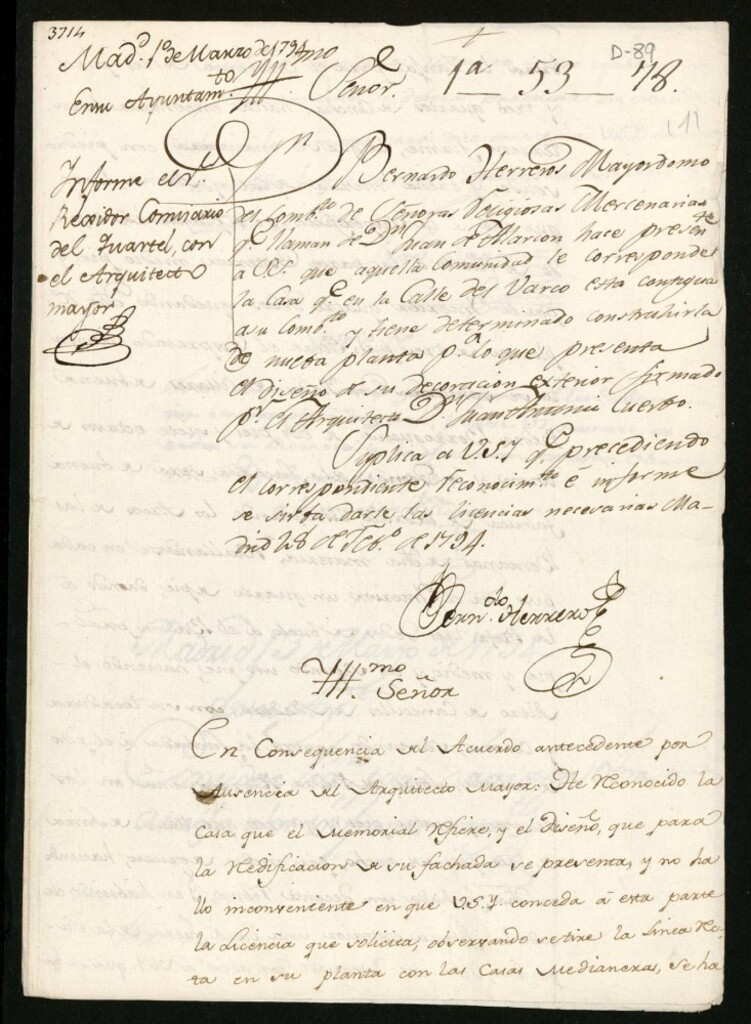 3714
Mad.d 1.º de Marzo de 1794
En su Ayuntam.to
Yll.mo Señor.
1a. 53 78.
D-89
(1)
Informe el S.r
Rexidor Comisario
del Quartel, con
el Arquitecto
mayor
D.n Bernardo Herreros Mayordomo
del Comb.to de Señoras Religiosas Mercenarias
q.e llaman de D.n Juan de Alarcon hace presen.te
a V.S.Y. que aquella Comunidad le corresponde
la Casa q.e en la Calle del Varco esta contigua
a su Comb.to y tiene determinado construhirla
de nueba planta p.a lo que presenta
el diseño de su decoracion exterior firmado
p.r el Arquitecto D.n Juan Antonio Cuerbo.
Suplica a V.S.Y. q.e precediendo
el correspondiente reconocim.to é informe
se sirba darle las licencias necesarias Ma-
drid 28 de Feb.º de 1794.
Bern.do Herreros
Yll.mo Señor
En Consequencia del Acuerdo antecedente por
Ausencia del Arquitecto Mayor: He reconocido la
Casa que el Memorial refiere, y el diseño, que para
la reedificacion de su fachada se presenta, y no ha
llo inconveniente en que V.S.Y. conceda â esta parte
la Licencia que solicita, observando se tire la Linea rec-
ta en su planta con las Casas Medianeras, se ha